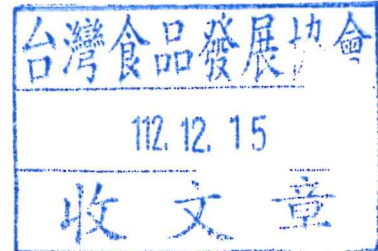 台灣食品發展協會
112.12.15
收文章